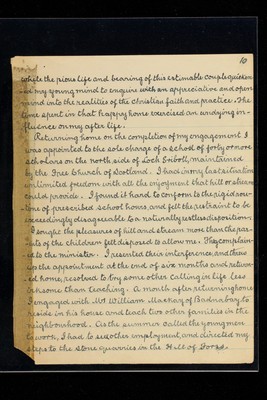 10
while the pious life and bearing of this estimable couple quicken-
ed my young mind to enquire with an appreciative and open
mind into the realities of the Christian faith and practice. The
time spent in that happy home exercised an undying in-
fluence on my after life.
Returning home on the completion of my engagement I
was appointed to the sole charge of a school of forty or more
scholars on the north side of Loch Eriboll, maintained
by the Free Church of Scotland. I had in my last situation
unlimited freedom with all the enjoyment that hill or stream
could provide. I found it hard to conform to the rigid exac-
tions of prescribed school hours, and felt the restraint to be
exceedingly disagreeable to a naturally restless disposition.
I sought the pleasures of hill and stream more than the par-
ents of the children felt disposed to allow me. They complain-
ed to the minister. I presented their interference, and threw
up the appointment at the end of six months and return-
ed home, resolved to try some other calling in life less
irksome than teaching. A month after returning home
I engaged with Mr William Mackay of Badnabay, to
reside in his house and teach two other families in the
neighbourhood. As the summer called the young men
to work, I had to seek other employment, and directed my
steps to the stone quarries in the Hill of Forss.